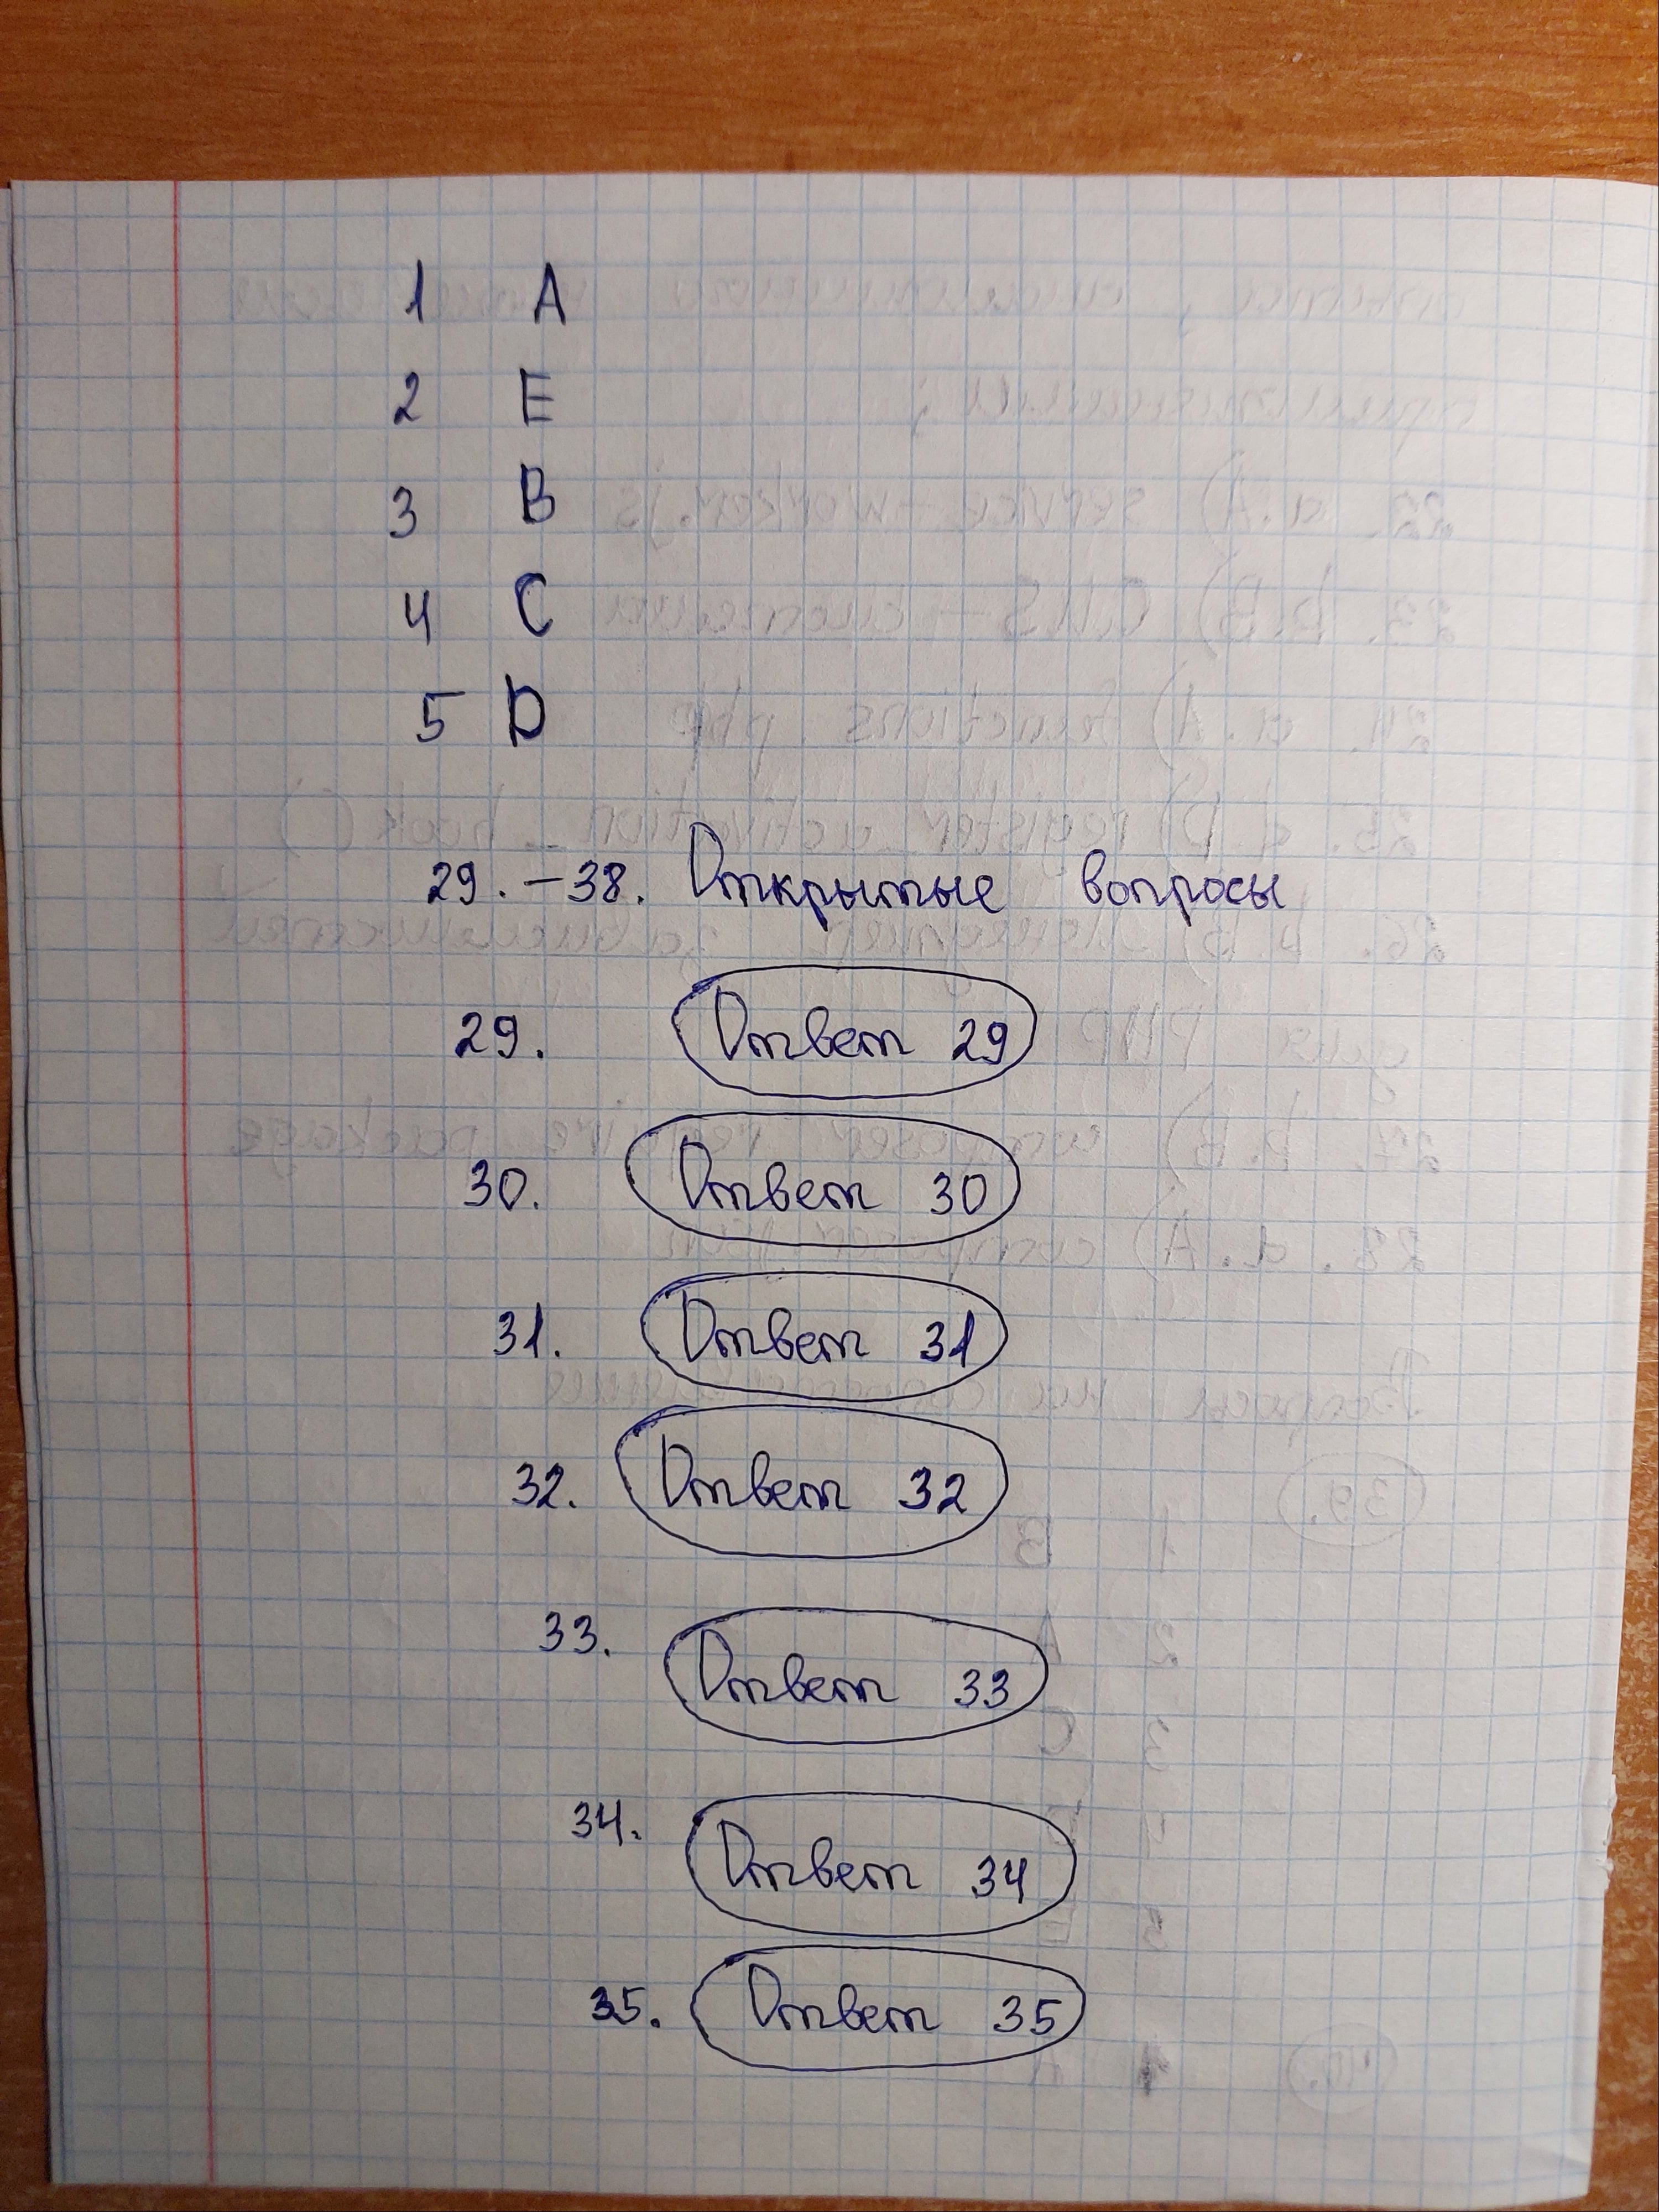 1 A
2 E
3 B
4 C
5 D
29. – 38. Открытые вопросы
29. Ответ 29
30. Ответ 30
31. Ответ 31
32. Ответ 32
33. Ответ 33
34. Ответ 34
35. Ответ 35